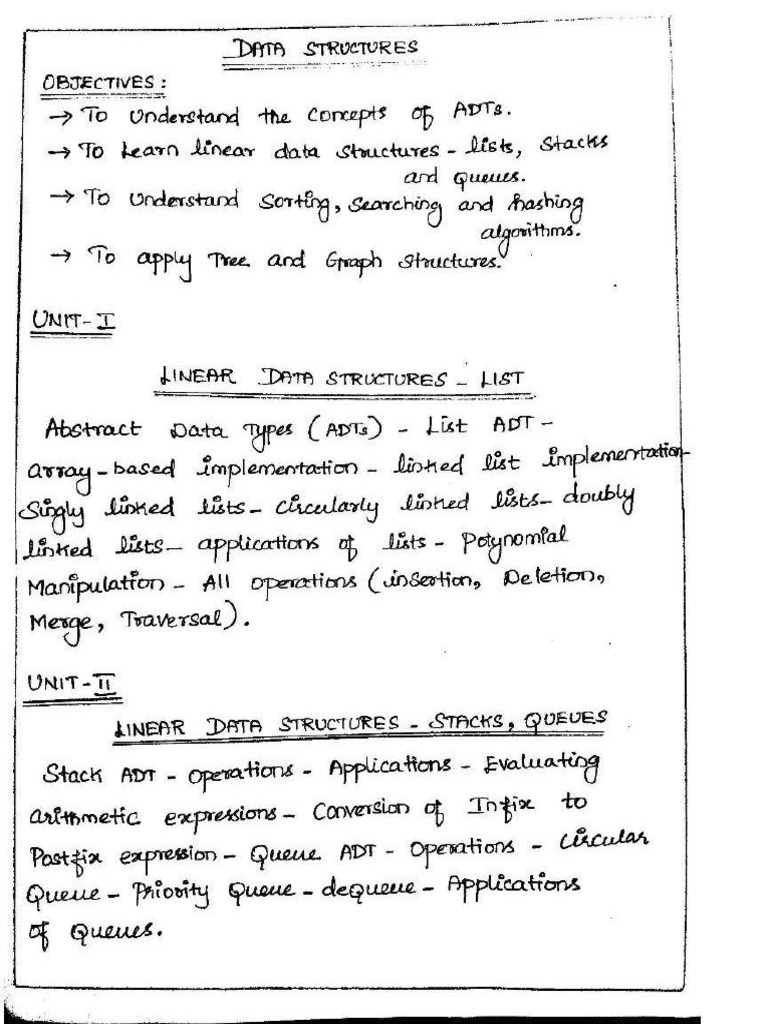 DATA STRUCTURES
OBJECTIVES:
→ To Understand the Concepts of ADTs.
→ To Learn linear data structures - lists, Stacks
and Queues.
→ To Understand Sorting, Searching and hashing
algorithms.
→ To apply Tree and Graph Structures.
UNIT-I
LINEAR DATA STRUCTURES - LIST
Abstract Data Types (ADTs) - List ADT -
array-based implementation - linked list implementation-
Singly linked lists - circularly linked lists - doubly
linked lists - applications of lists - Polynomial
Manipulation - All operations (insertion, Deletion,
Merge, Traversal).
UNIT-II
LINEAR DATA STRUCTURES - STACKS, QUEUES
Stack ADT - Operations - Applications - Evaluating
arithmetic expressions - Conversion of Infix to
Postfix expression - Queue ADT - Operations - Circular
Queue - Priority Queue - deQueue - Applications
of Queues.